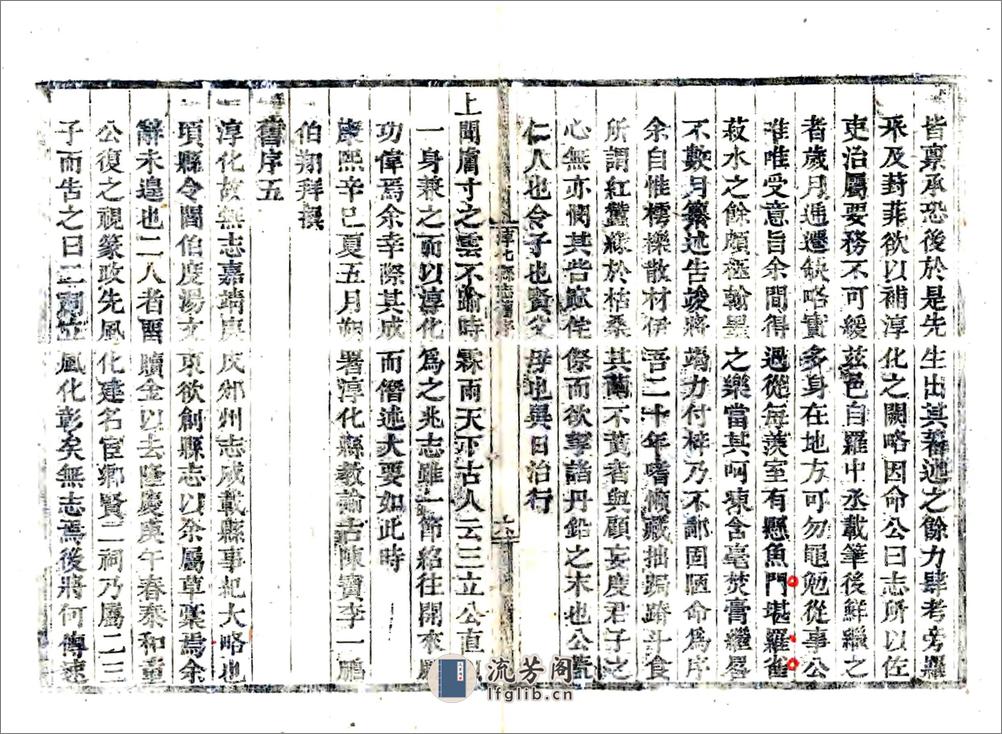 皆稟承恐後於是先生出其著述之餘力肆考旁羅
采及葑菲欲以補淳化之闕略因命公曰志所以佐
吏治屬要務不可緩茲邑自羅中丞載筆後鮮繼之
者歲月逓遷缺略實多身在地方可勿黽勉從事公
唯唯受意旨余間得過從每羨室有懸魚門堪羅雀
菽水之餘頗極翰墨之樂當其呵凍含毫焚膏繼晷
不數月纂述告竣將竭力付梓乃不鄙固陋命為序
余自惟樗櫟散材伊吾二十年嗜懶藏拙跼蹐斗食
所謂紅鸞緣於枯桑其繭不黃者與顧妄度君子之
心無亦憫其呰窳侘傺而欲挈諸丹鉛之末也公真
仁人也令子也賢父母也異日治行
淳化縣志舊序
上聞膚寸之雲不踰時霖雨天下古人云三立公直以
一身兼之而以淳化為之兆志雖一節紹往開來厥
功偉焉余幸際其成而僭述大要如此時
康熙辛巳夏五月朔署淳化縣教諭古陳寶李一鵬
伯翔拜撰
舊序五
淳化故無志嘉靖庚戌邠州志成載縣事紀大略也
項縣令閻伯度湯文東欲創縣志以余屬草稾焉余
辭未遑也二人者留贖金以去隆慶庚午春泰和董
公復之視篆政先風化建名宦鄉賢二祠乃屬二三
子而告之曰二祠立風化彰矣無志焉後將何傳速
流芳阁
lfglib.cn